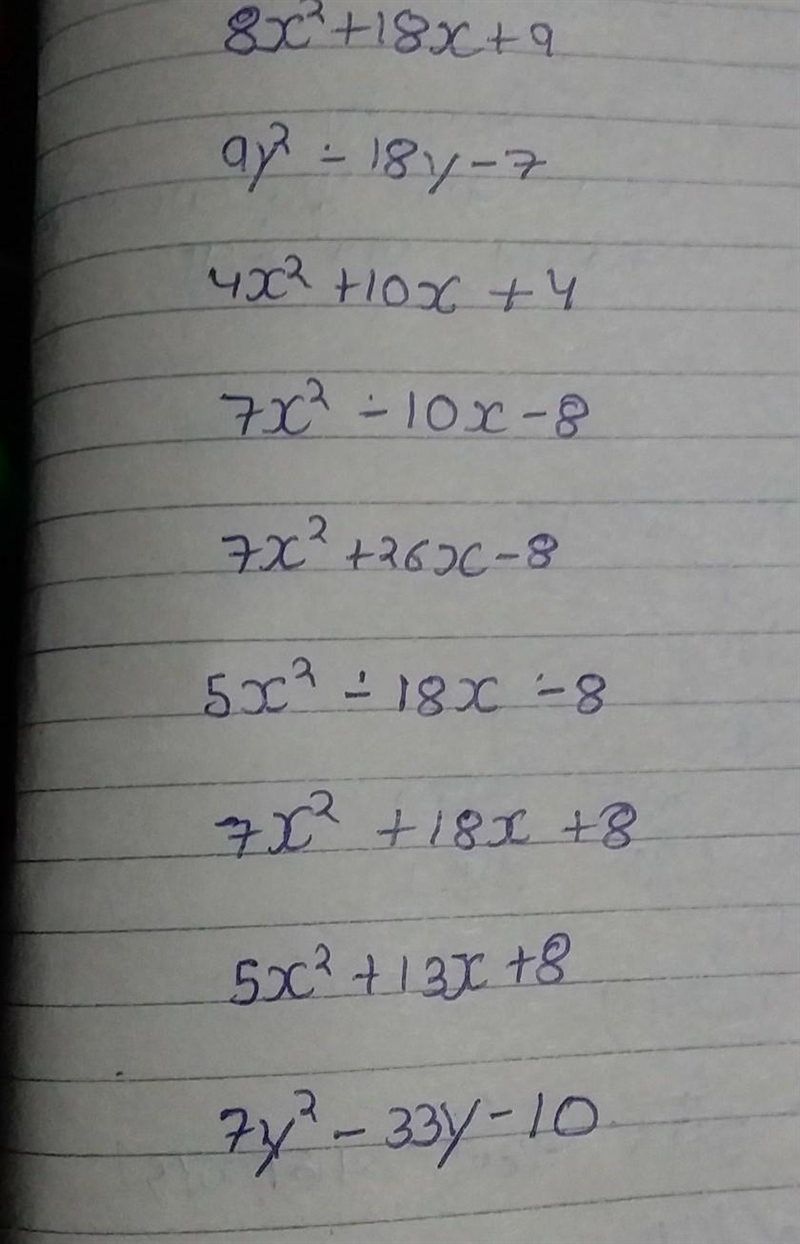 8x² + 18x + 9
9y² - 18y - 7
4x² + 10x + 4
7x² - 10x - 8
7x² + 26x - 8
5x² - 18x - 8
7x² + 18x + 8
5x² + 13x + 8
7y² - 33y - 10